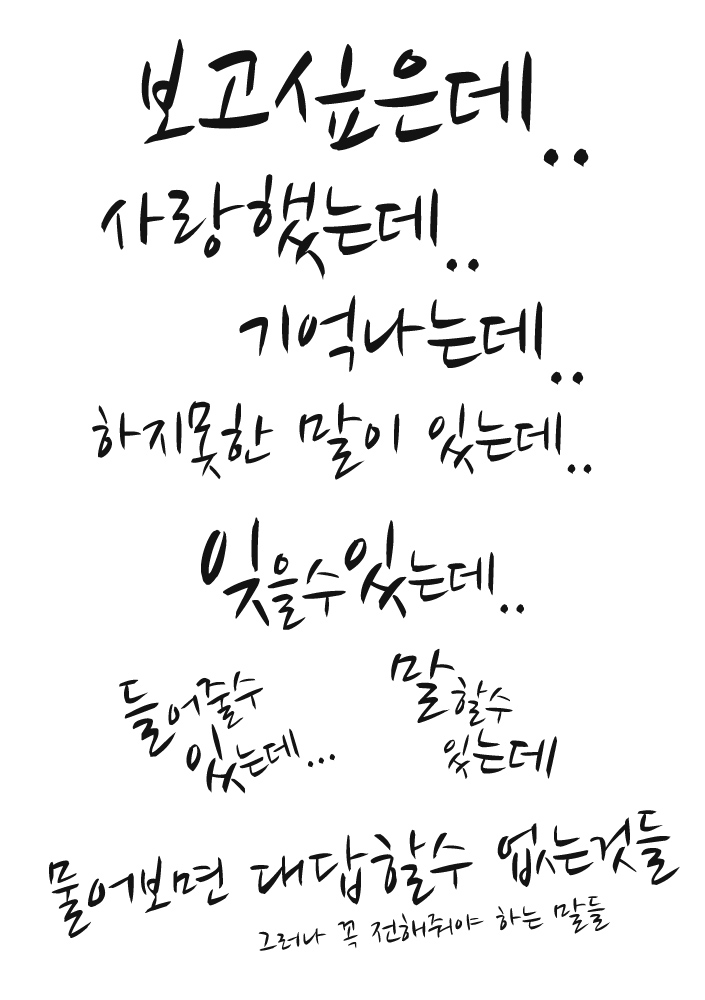 보고싶은데..
사랑했는데..
기억나는데..
하지못한 말이 있는데..
잊을수있는데..
들어줄수
있는데...
말할수
있는데
물어보면 대답할수 없는것들
그러나 꼭 전해줘야 하는 말들